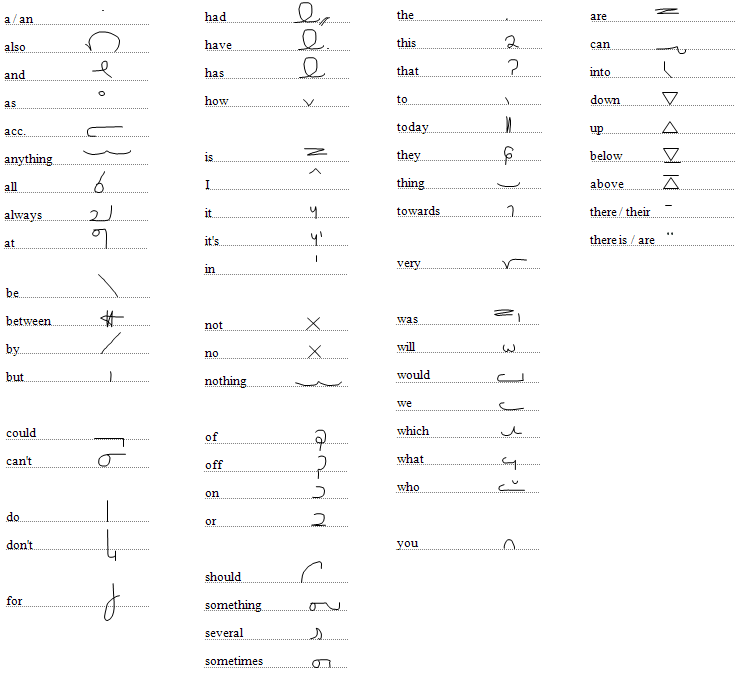 a / an
also
and
as
acc.
anything
all
always
at
be
between
by
but
could
can't
do
don't
for
had
have
has
how
is
I
it
it's
in
not
no
nothing
of
off
on
or
should
something
several
sometimes
the
this
that
to
today
they
thing
towards
very
was
will
would
we
which
what
who
you
are
can
into
down
up
below
above
there / their
there is / are